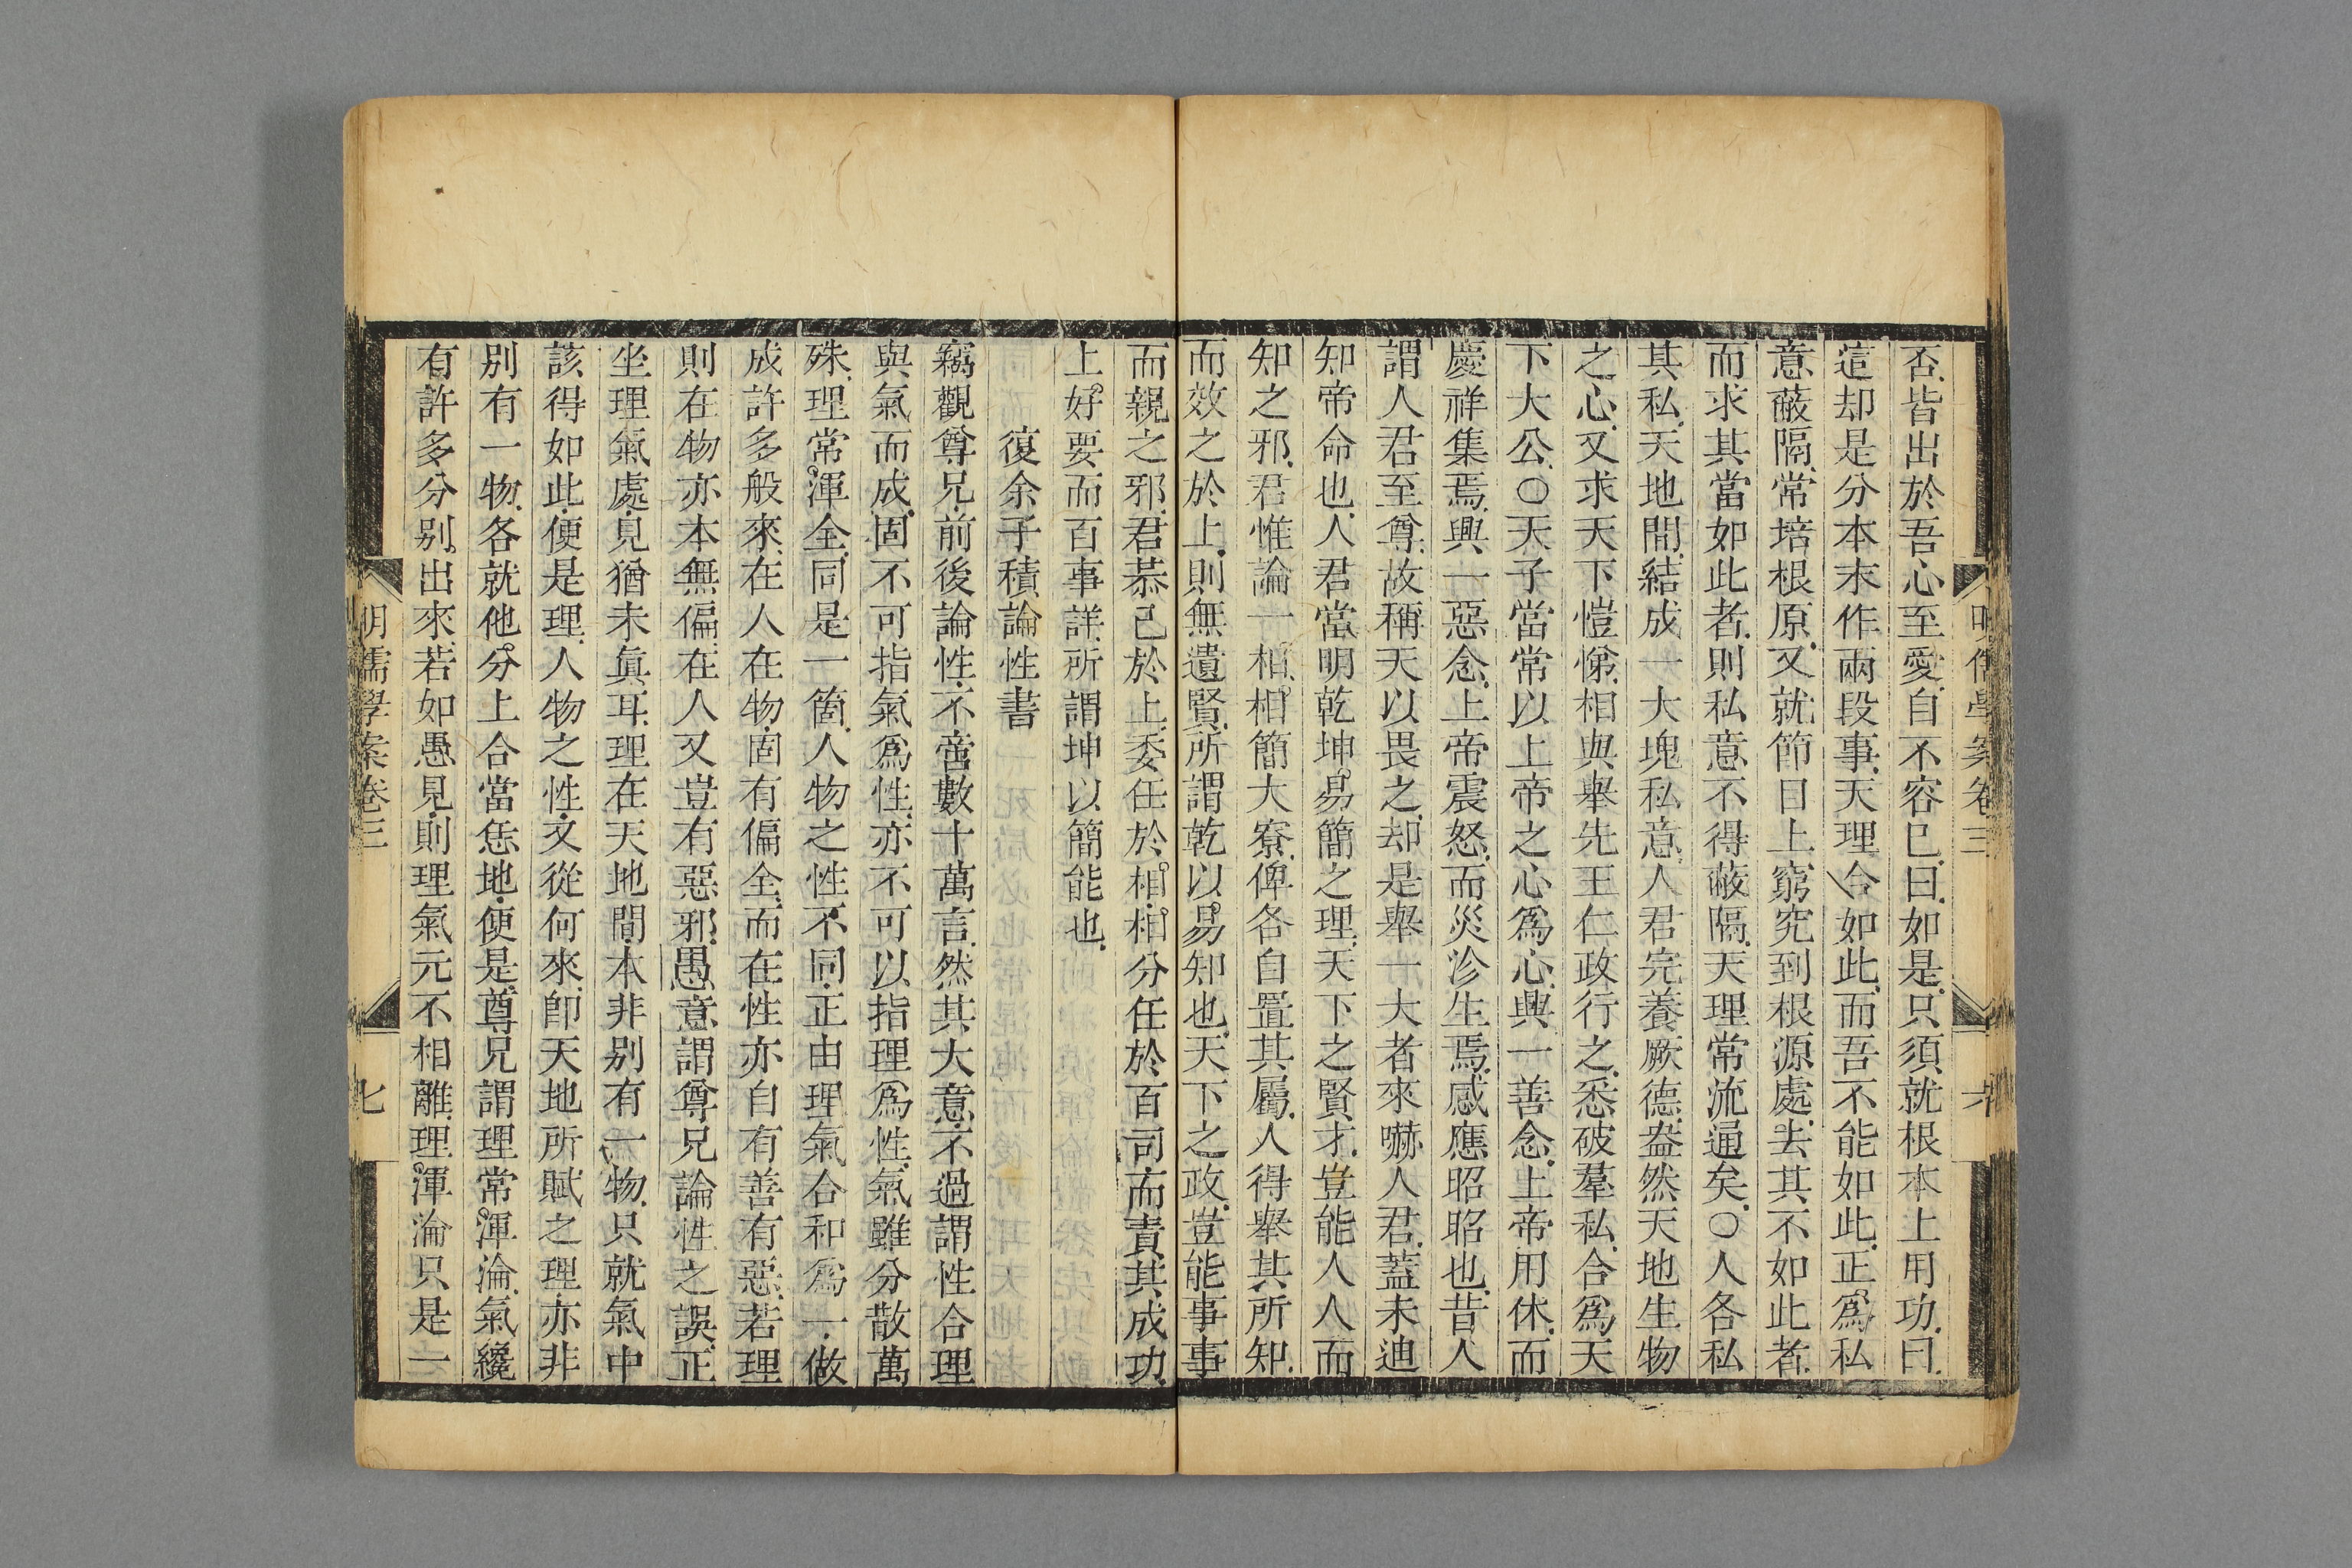 明儒學案卷三
六
否皆出於吾心至愛自不容已曰如是只須就根本上用功曰
這却是分本末作兩段事天理合如此而吾不能如此正爲私
意蔽隔常培根原又就節目上窮究到根源處去其不如此者
而求其當如此者則私意不得蔽隔天理常流通矣○人各私
其私天地間結成一大塊私意人君完養厥德盎然天地生物
之心又求天下愷悌相與舉先王仁政行之悉破羣私合爲天
下大公○天子當常以上帝之心爲心興一善念上帝用休而
慶祥集焉興一惡念上帝震怒而災沴生焉感應昭昭也昔人
謂人君至尊故稱天以畏之却是舉一大者來嚇人君蓋未迪
知帝命也人君當明乾坤易簡之理天下之賢才豈能人人而
知之邪君惟論一相相簡大寮俾各自置其屬人得舉其所知
而效之於上則無遺賢所謂乾以易知也天下之政豈能事事
而親之邪君恭己於上委任於相相分任於百司而責其成功
上好要而百事詳所謂坤以簡能也
復余子積論性書
竊觀尊兄前後論性不啻數十萬言然其大意不過謂性合理
與氣而成固不可指氣爲性亦不可以指理爲性氣雖分散萬
殊理常渾全同是一箇人物之性不同正由理氣合和爲一做
成許多般來在人在物固有偏全而在性亦自有善有惡若理
則在物亦本無偏在人又豈有惡邪愚意謂尊兄論性之誤正
坐理氣處見猶未眞耳理在天地間本非别有一物只就氣中
該得如此便是理人物之性又從何來卽天地所賦之理亦非
别有一物各就他分上合當恁地便是尊兄謂理常渾淪氣纔
有許多分别出來若如愚見則理氣元不相離理渾淪只是一
明儒學案卷三
七